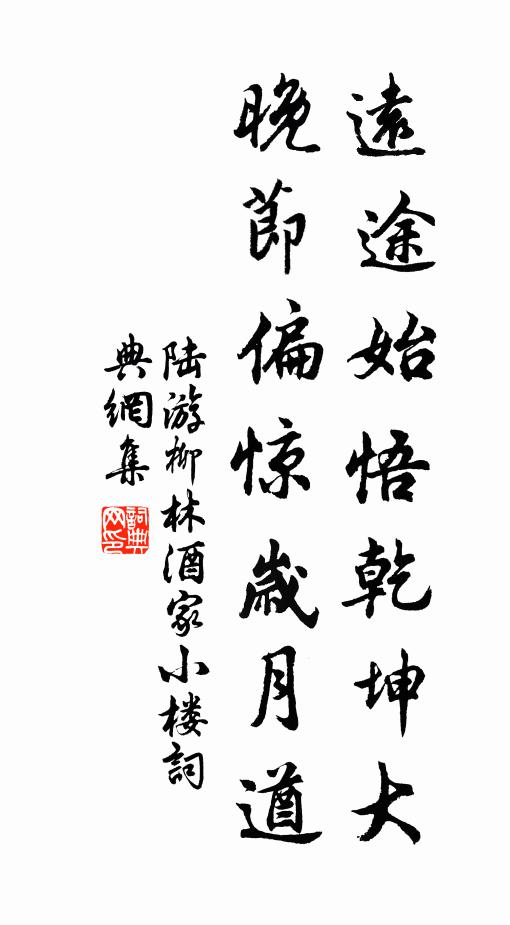 遠途始悟乾坤大
晚節偏惊歲月遒
陆游柳林酒家小楼詞
典網集
詞典网印